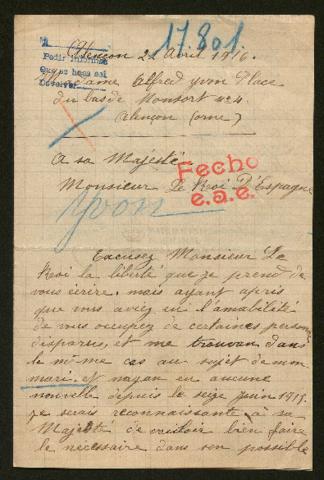 17.801
Alençon 22 Avril 1916.
Pedir informes
Madame Alfred Yvon Place
du bas de Monsort n: 4
Alençon (orne)
A sa Majesté
Monsieur Le Roi D'Espagne
Fecho
e.a.e.
Yvon
Excusez Monsieur Le
Roi la liberté que je prend de
vous écrire, mais ayant apris
que vous aviez eu l'amabilité
de vous occupez de certaines personnes
disparus, et me trouvan dans
le même cas au sujet de mon
mari, et nayan eu aucune
nouvelle depuis le seize juin 1915.
je serais reconnaissante à sa
Majesté de vouloir bien faire
le nécessaire dans son possible